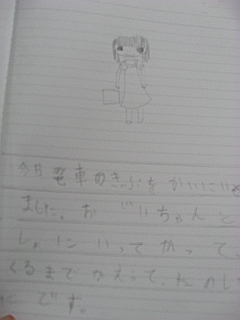 今日電車のきっぷをかいにいき
ました。おじいちゃんと
しょにいってかって、
くるまでかえって、たのし
です。